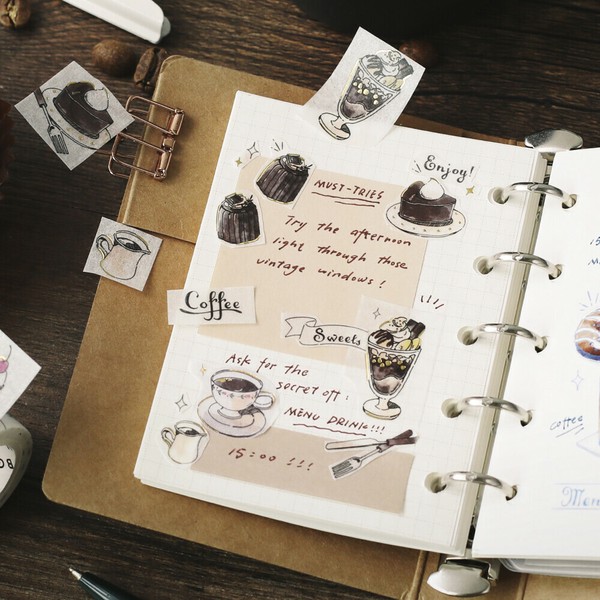 Enjoy!
MUST-TRIES
Try the afternoon
light through those
vintage windows!
Coffee
Sweets
Ask for the
secret off-
MENU DRINK!!!
15:00 !!!
coffee